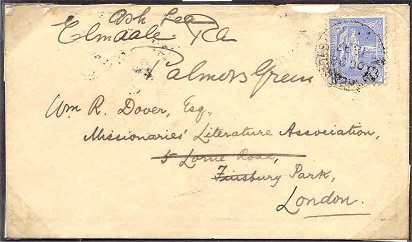 Ash Lea
Elmdale Rd
Palmers Green
Wm R. Dover, Esq.,
Missionaries' Literature Association,
5 Lorne Road,
Finsbury Park,
London.